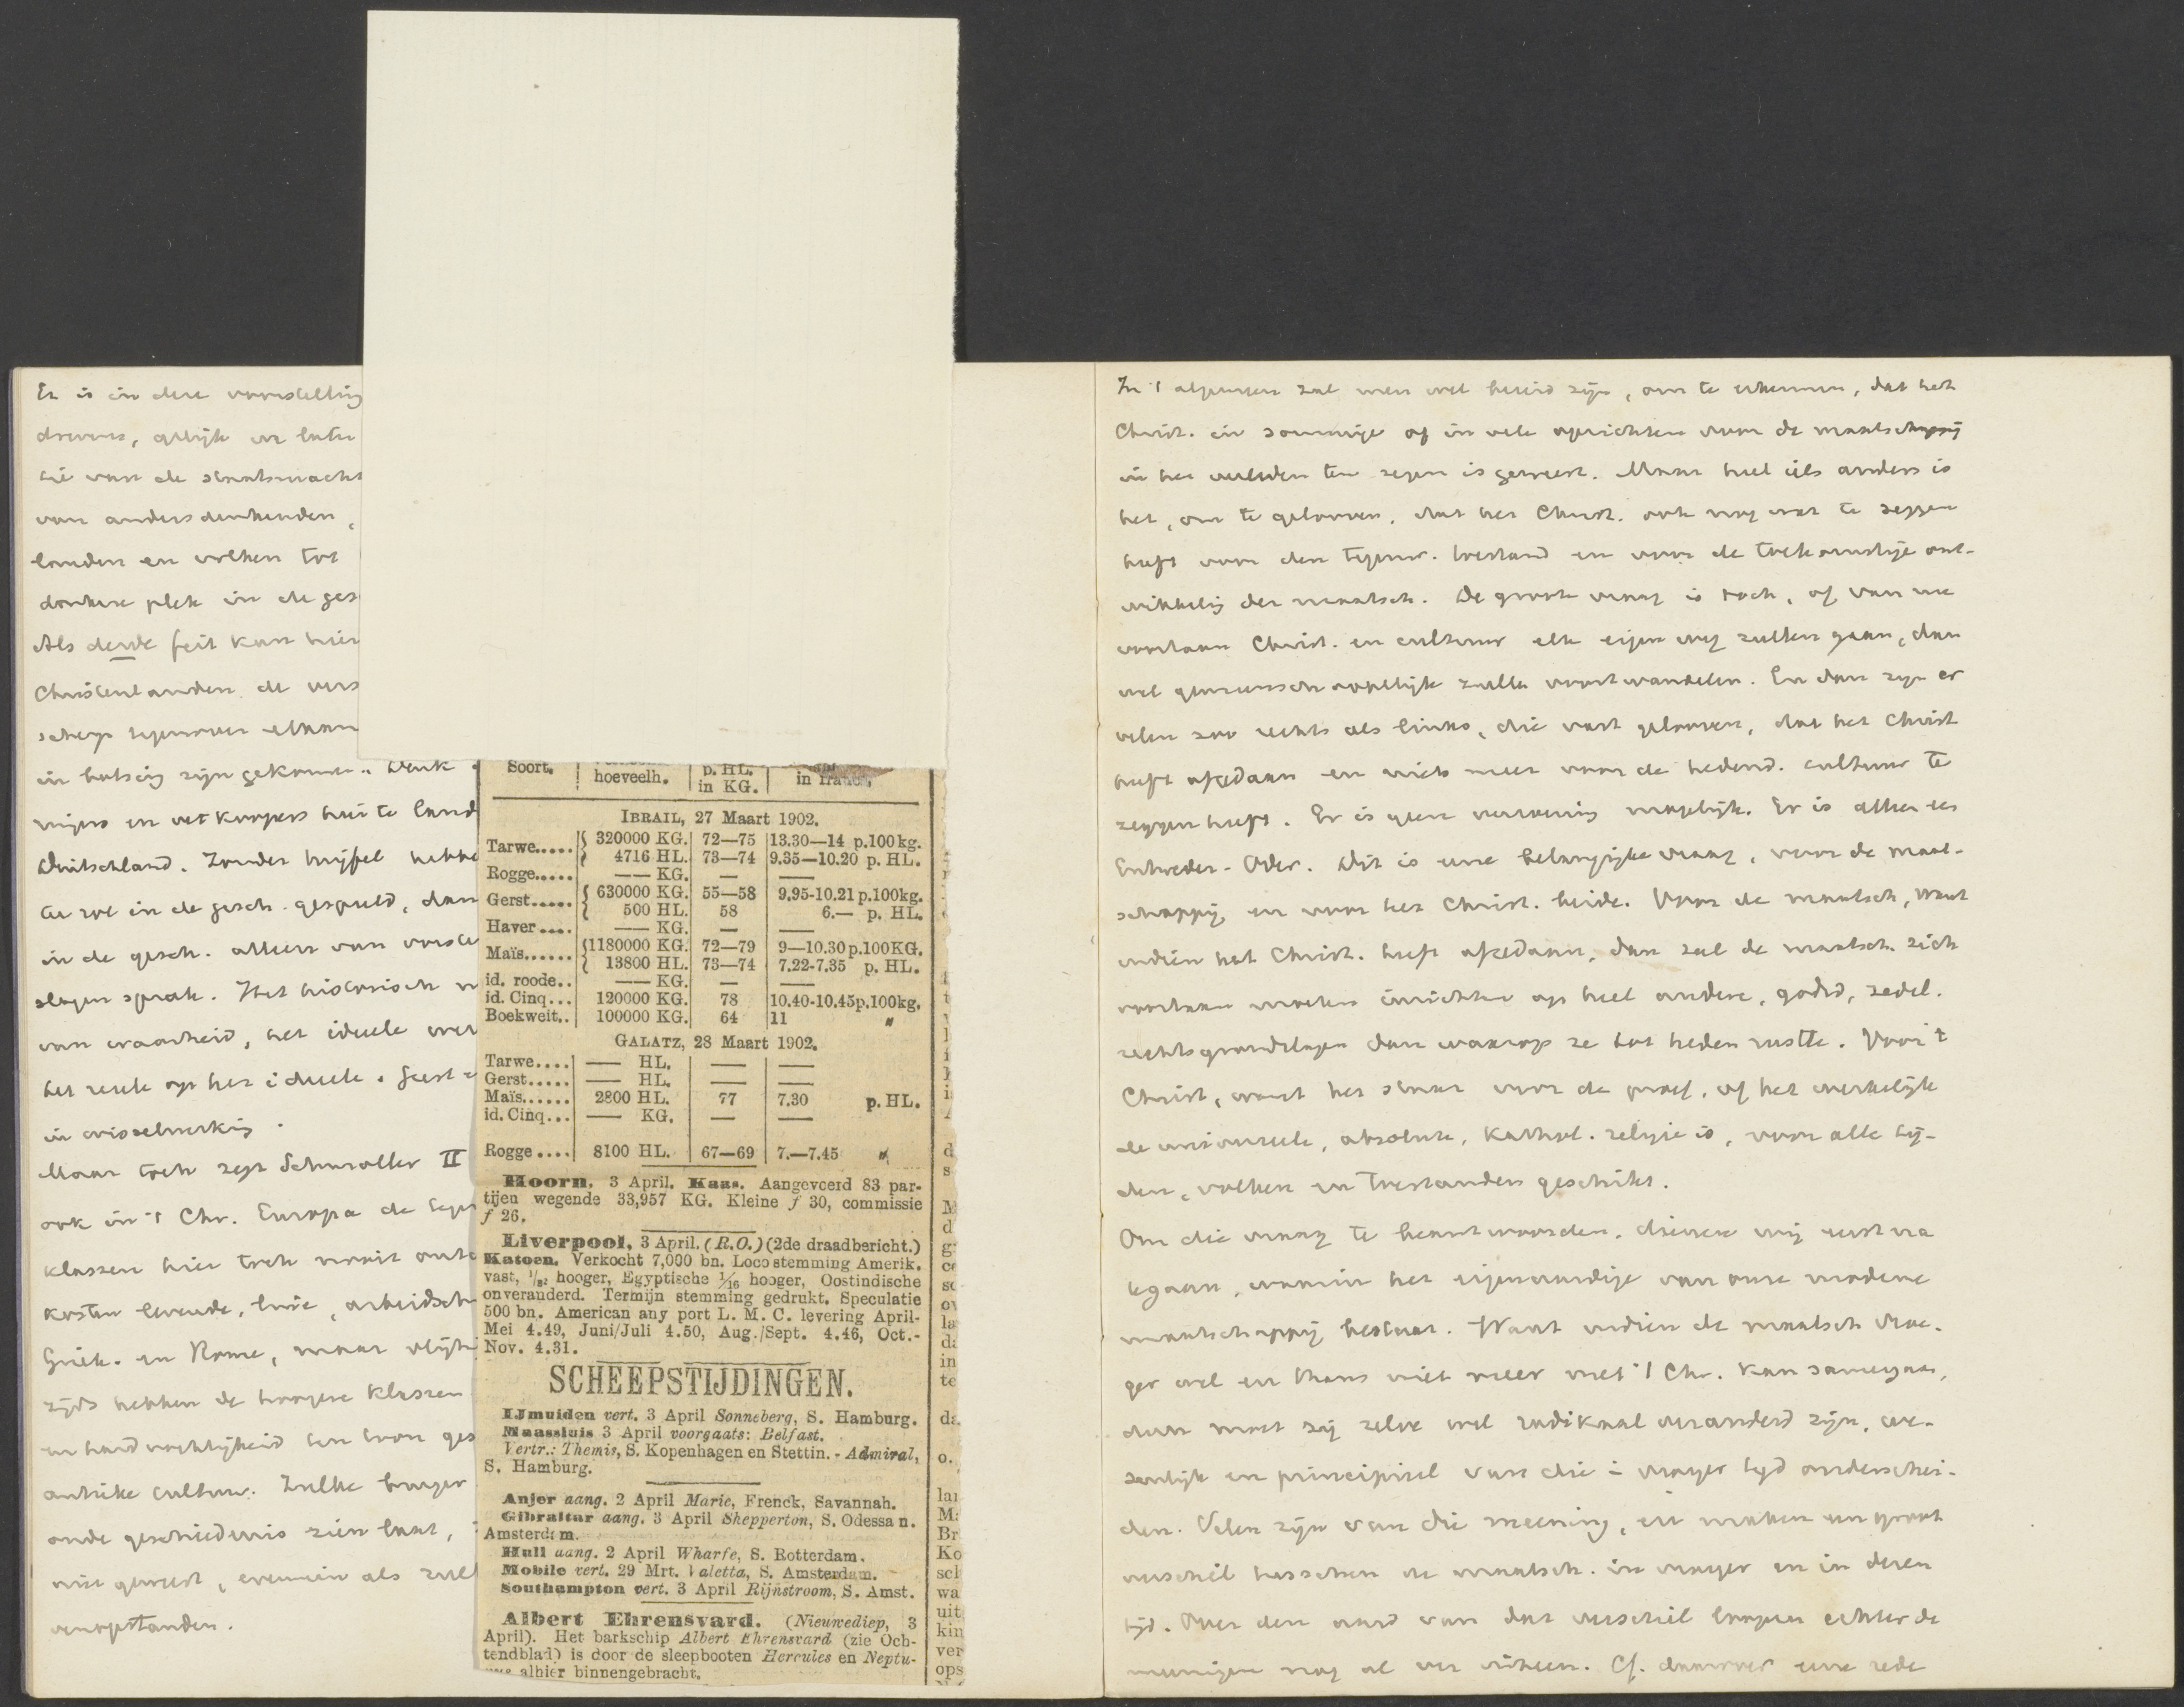 Er is in deze voorstelling
drevens, gelijk er later
tie van de staatsmacht
van andersdenkenden,
landen en volken tot
donkere plek in de ges
Als derde feit kan hier
Christenlanden de vers
scherp tegenover elkaar
in botsing zijn gekomen. Denk
mijns en verkoopers hier te land
Duitschland. Zonder twijfel hebbe
te rol in de gesch. gespeeld, dan
in de gesch. alleen van
slagen sprak. Het historisch
van waarheid, het ideele
het reeele op het ideeele. geest
in wisselwerking.
Maar toch zegt Schmoller II
ook in 't Chr. Europa de
klassen hier toch nooit
kosten levende, luie, arbeidsch
Griek. en Rome, maar vlijti
zijds hebben de hoogere klassen
en hardvochtigheid ten toon ges
antieke cultuur. Zulke
oude geschiedenis zien laat,
niet geweest, evenmin als
opstanden.
Soort. hoeveelh. p. HL. in KG. in francs.
IBRAIL, 27 Maart 1902.
Tarwe..... 320000 KG. 72—75 13.30—14 p.100kg.
4716 HL. 73—74 9.35—10.20 p. HL.
Rogge..... —— KG. — ——
Gerst..... 630000 KG. 55—58 9.95-10.21 p.100kg.
500 HL. 58 6.— p. HL.
Haver.... —— KG. — ——
Maïs...... 1180000 KG. 72—79 9—10.30 p.100KG.
13800 HL. 73—74 7.22-7.35 p. HL.
id. roode.. —— KG. — ——
id. Cinq... 120000 KG. 78 10.40-10.45p.100kg.
Boekweit.. 100000 KG. 64 11 "
GALATZ, 28 Maart 1902.
Tarwe.... —— HL. —— ——
Gerst..... —— HL. —— ——
Maïs...... 2800 HL. 77 7.30 p. HL.
id. Cinq... —— KG. — ——
Rogge.... 8100 HL. 67—69 7.—7.45 "
Hoorn, 3 April. Kaas. Aangevoerd 83 par-
tijen wegende 33,957 KG. Kleine f 30, commissie
f 26.
Liverpool, 3 April. (R.O.) (2de draadbericht.)
Katoen. Verkocht 7,000 bn. Loco stemming Amerik.
vast, 1/8: hooger, Egyptische 1/16 hooger, Oostindische
onveranderd. Termijn stemming gedrukt. Speculatie
500 bn. American any port L. M. C. levering April-
Mei 4.49, Juni/Juli 4.50, Aug./Sept. 4.46, Oct.-
Nov. 4.31.
SCHEEPSTIJDINGEN.
IJmuiden vert. 3 April Sonneberg, S. Hamburg.
Maassluis 3 April voorgaats: Belfast.
Vertr.: Themis, S. Kopenhagen en Stettin. - Admiral,
S. Hamburg.
Anjer aang. 2 April Marie, Frenck, Savannah.
Gibraltar aang. 3 April Shepperton, S. Odessa n.
Amsterdam.
Hull aang. 2 April Wharfe, S. Rotterdam.
Mobile vert. 29 Mrt. Valetta, S. Amsterdam.
Southampton vert. 3 April Rijnstroom, S. Amst.
Albert Ehrensvard. (Nieuwediep, 3
April). Het barkschip Albert Ehrensvard (zie Och-
tendblad) is door de sleepbooten Hercules en Neptu-
nus alhier binnengebracht.
In 't algemeen zal men wel bereid zijn, om te erkennen, dat het
Christ. in sommige of in vele opzichten voor de maatschappij
in het verleden ten zegen is geweest. Maar heel iets anders is
het, om te gelooven, dat het Christ. ook nog wat te zeggen
heeft voor den tegenw. toestand en voor de toekomstige ont-
wikkeling der maatsch. De groote vraag is toch, of van nu
voortaan Christ. en cultuur elk eigen weg zullen gaan, dan
wel gemeenschappelijk zullen voortwandelen. En dan zijn er
velen zoo rechts als links, die vast gelooven, dat het Christ
heeft afgedaan en niets meer voor de hedend. cultuur te
zeggen heeft. Er is geen verzoening mogelijk. Er is alleen een
Entweder-Oder. Dit is eene belangrijke vraag, voor de maat-
schappij, en voor het Christ. beide. Voor de maatsch, want
indien het Christ. heeft afgedaan, dan zal de maatsch. zich
voortaan moeten inrichten op heel andere, godsd, zedel.
rechtsgrondslagen dan waarop ze tot heden rustte. Voor 't
Christ, want het staat voor de proef, of het werkelijk
de universeele, absolute, kathol. religie is, voor alle tij-
den, volken en toestanden geschikt.
Om die vraag te beantwoorden, dienen wij eerst na
te gaan, waarin het eigenaardige van onze moderne
maatschappij bestaat. Want indien de maatsch vroe-
ger wel en thans niet meer met 't Chr. kan samengaan,
dan moet zij zelve wel radikaal veranderd zijn, we-
zenlijk en principieel van die in vroeger tijd onderschei-
den. Velen zijn van die meening, en maken een groot
verschil tusschen de maatsch. in vroeger en in dezen
tijd. Over den aard van dat verschil loopen echter de
meeningen nog al ver uiteen. Cf. daarover eene rede